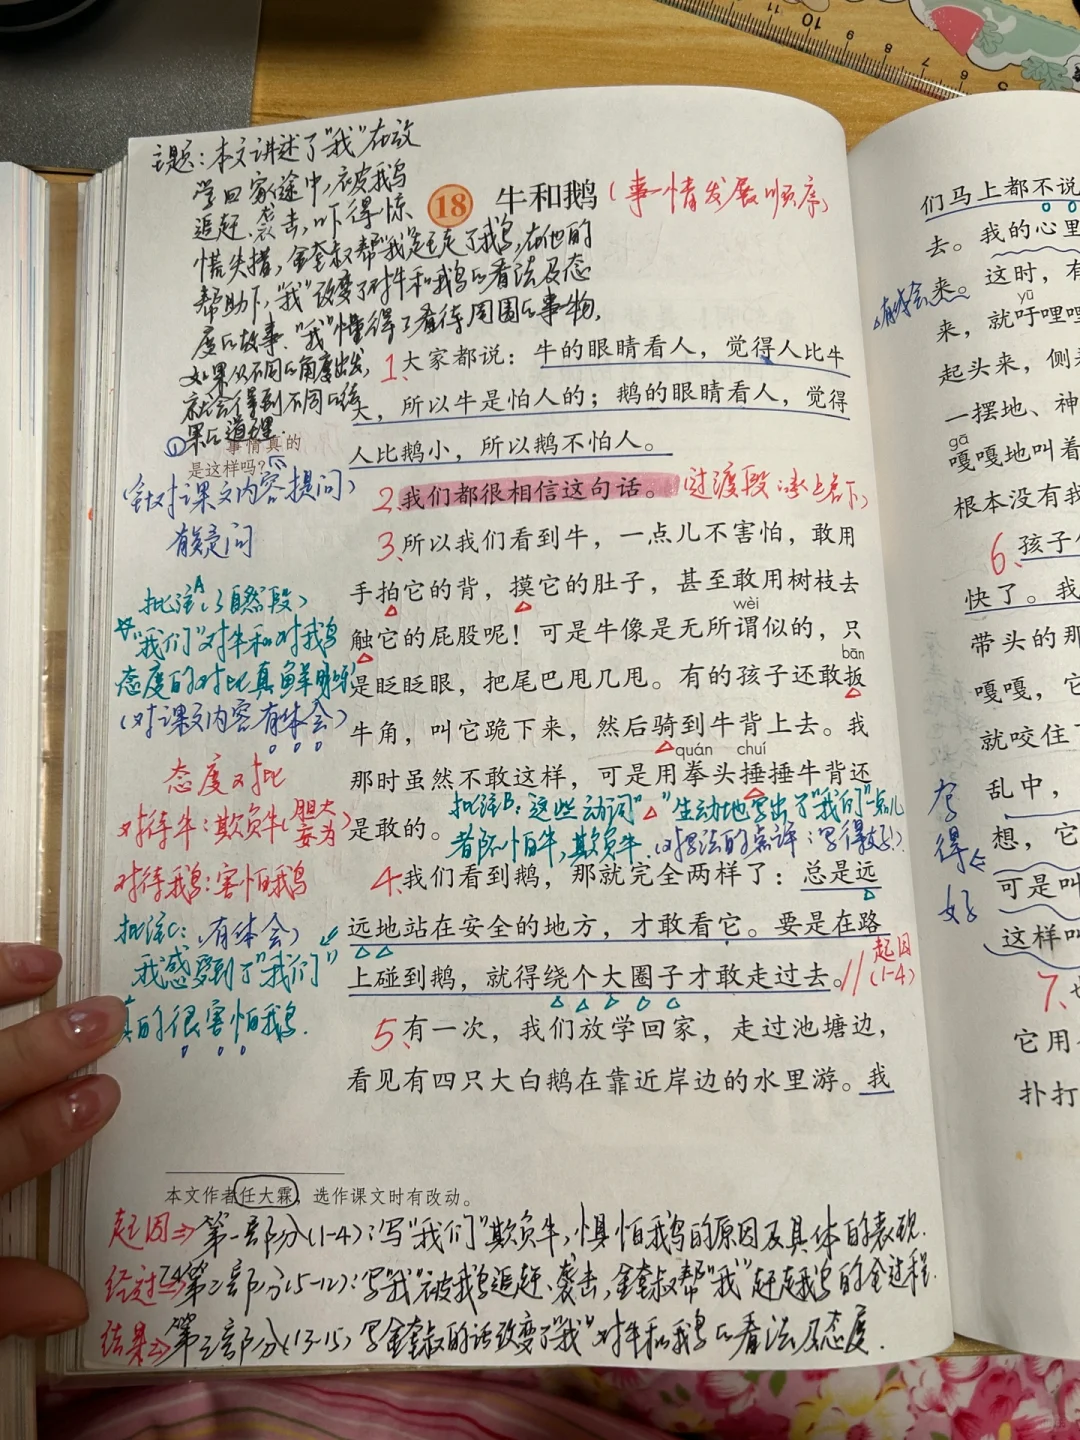 主题:本文讲述了"我"在放
学回家途中,被鹅
追赶、袭击,吓得惊
慌失措,金奎叔帮"我"赶走了鹅,在他的
帮助下,"我"改变了对牛和鹅的看法及态
度的故事。"我"懂得了看待周围的事物,
如果从不同的角度出发,
就会得到不同的结
果的道理.
18 牛和鹅(事情发展顺序)
1、大家都说:牛的眼睛看人,觉得人比牛
大,所以牛是怕人的;鹅的眼睛看人,觉得
人比鹅小,所以鹅不怕人。
① 事情真的
是这样吗?
(针对课文内容提问)
有疑问
2、我们都很相信这句话。(过渡段:承上启下)
3、所以我们看到牛,一点儿不害怕,敢用
手拍它的背,摸它的肚子,甚至敢用树枝去
wèi
触它的屁股呢!可是牛像是无所谓似的,只
bān
是眨眨眼,把尾巴甩几甩。有的孩子还敢扳
牛角,叫它跪下来,然后骑到牛背上去。我
quán chuí
那时虽然不敢这样,可是用拳头捶捶牛背还
是敢的。
批注A(3自然段)
"我们"对牛和对鹅
态度的对比真鲜明呀!
(对课文内容有体会)
态度对比
对待牛:欺负牛(胆大妄为)
对待鹅:害怕鹅
批注B:这些动词"△"生动地写出了"我们"一点儿
都不怕牛,欺负牛.(对写法的点评:写得好).
4、我们看到鹅,那就完全两样了:总是远
远地站在安全的地方,才敢看它。要是在路
上碰到鹅,就得绕个大圈子才敢走过去。//
起因
(1-4)
批注C:(有体会)
我感受到了"我们"
真的很害怕鹅.
5、有一次,我们放学回家,走过池塘边,
看见有四只大白鹅在靠近岸边的水里游。我
本文作者任大霖,选作课文时有改动。
起因⇒第一部分(1-4):写"我们"欺负牛,惧怕鹅的原因及具体的表现.
经过⇒第二部分(5-12):写"我"被鹅追赶、袭击,金奎叔帮"我"赶走鹅的全过程.
结果⇒第三部分(13-15)写金奎叔的话改变了"我"对牛和鹅的看法及态度.
们马上都不说
去。我的心里
有体会
来。这时,有
yū
来,就吁哩哩
起头来,侧
一摆地、神
gā
嘎嘎地叫着
根本没有我
6、孩子
快了。我
带头的那
嘎嘎,它
就咬住
乱中,
写得好
想,它
可是叫
这样叫
7、
它用
扑打